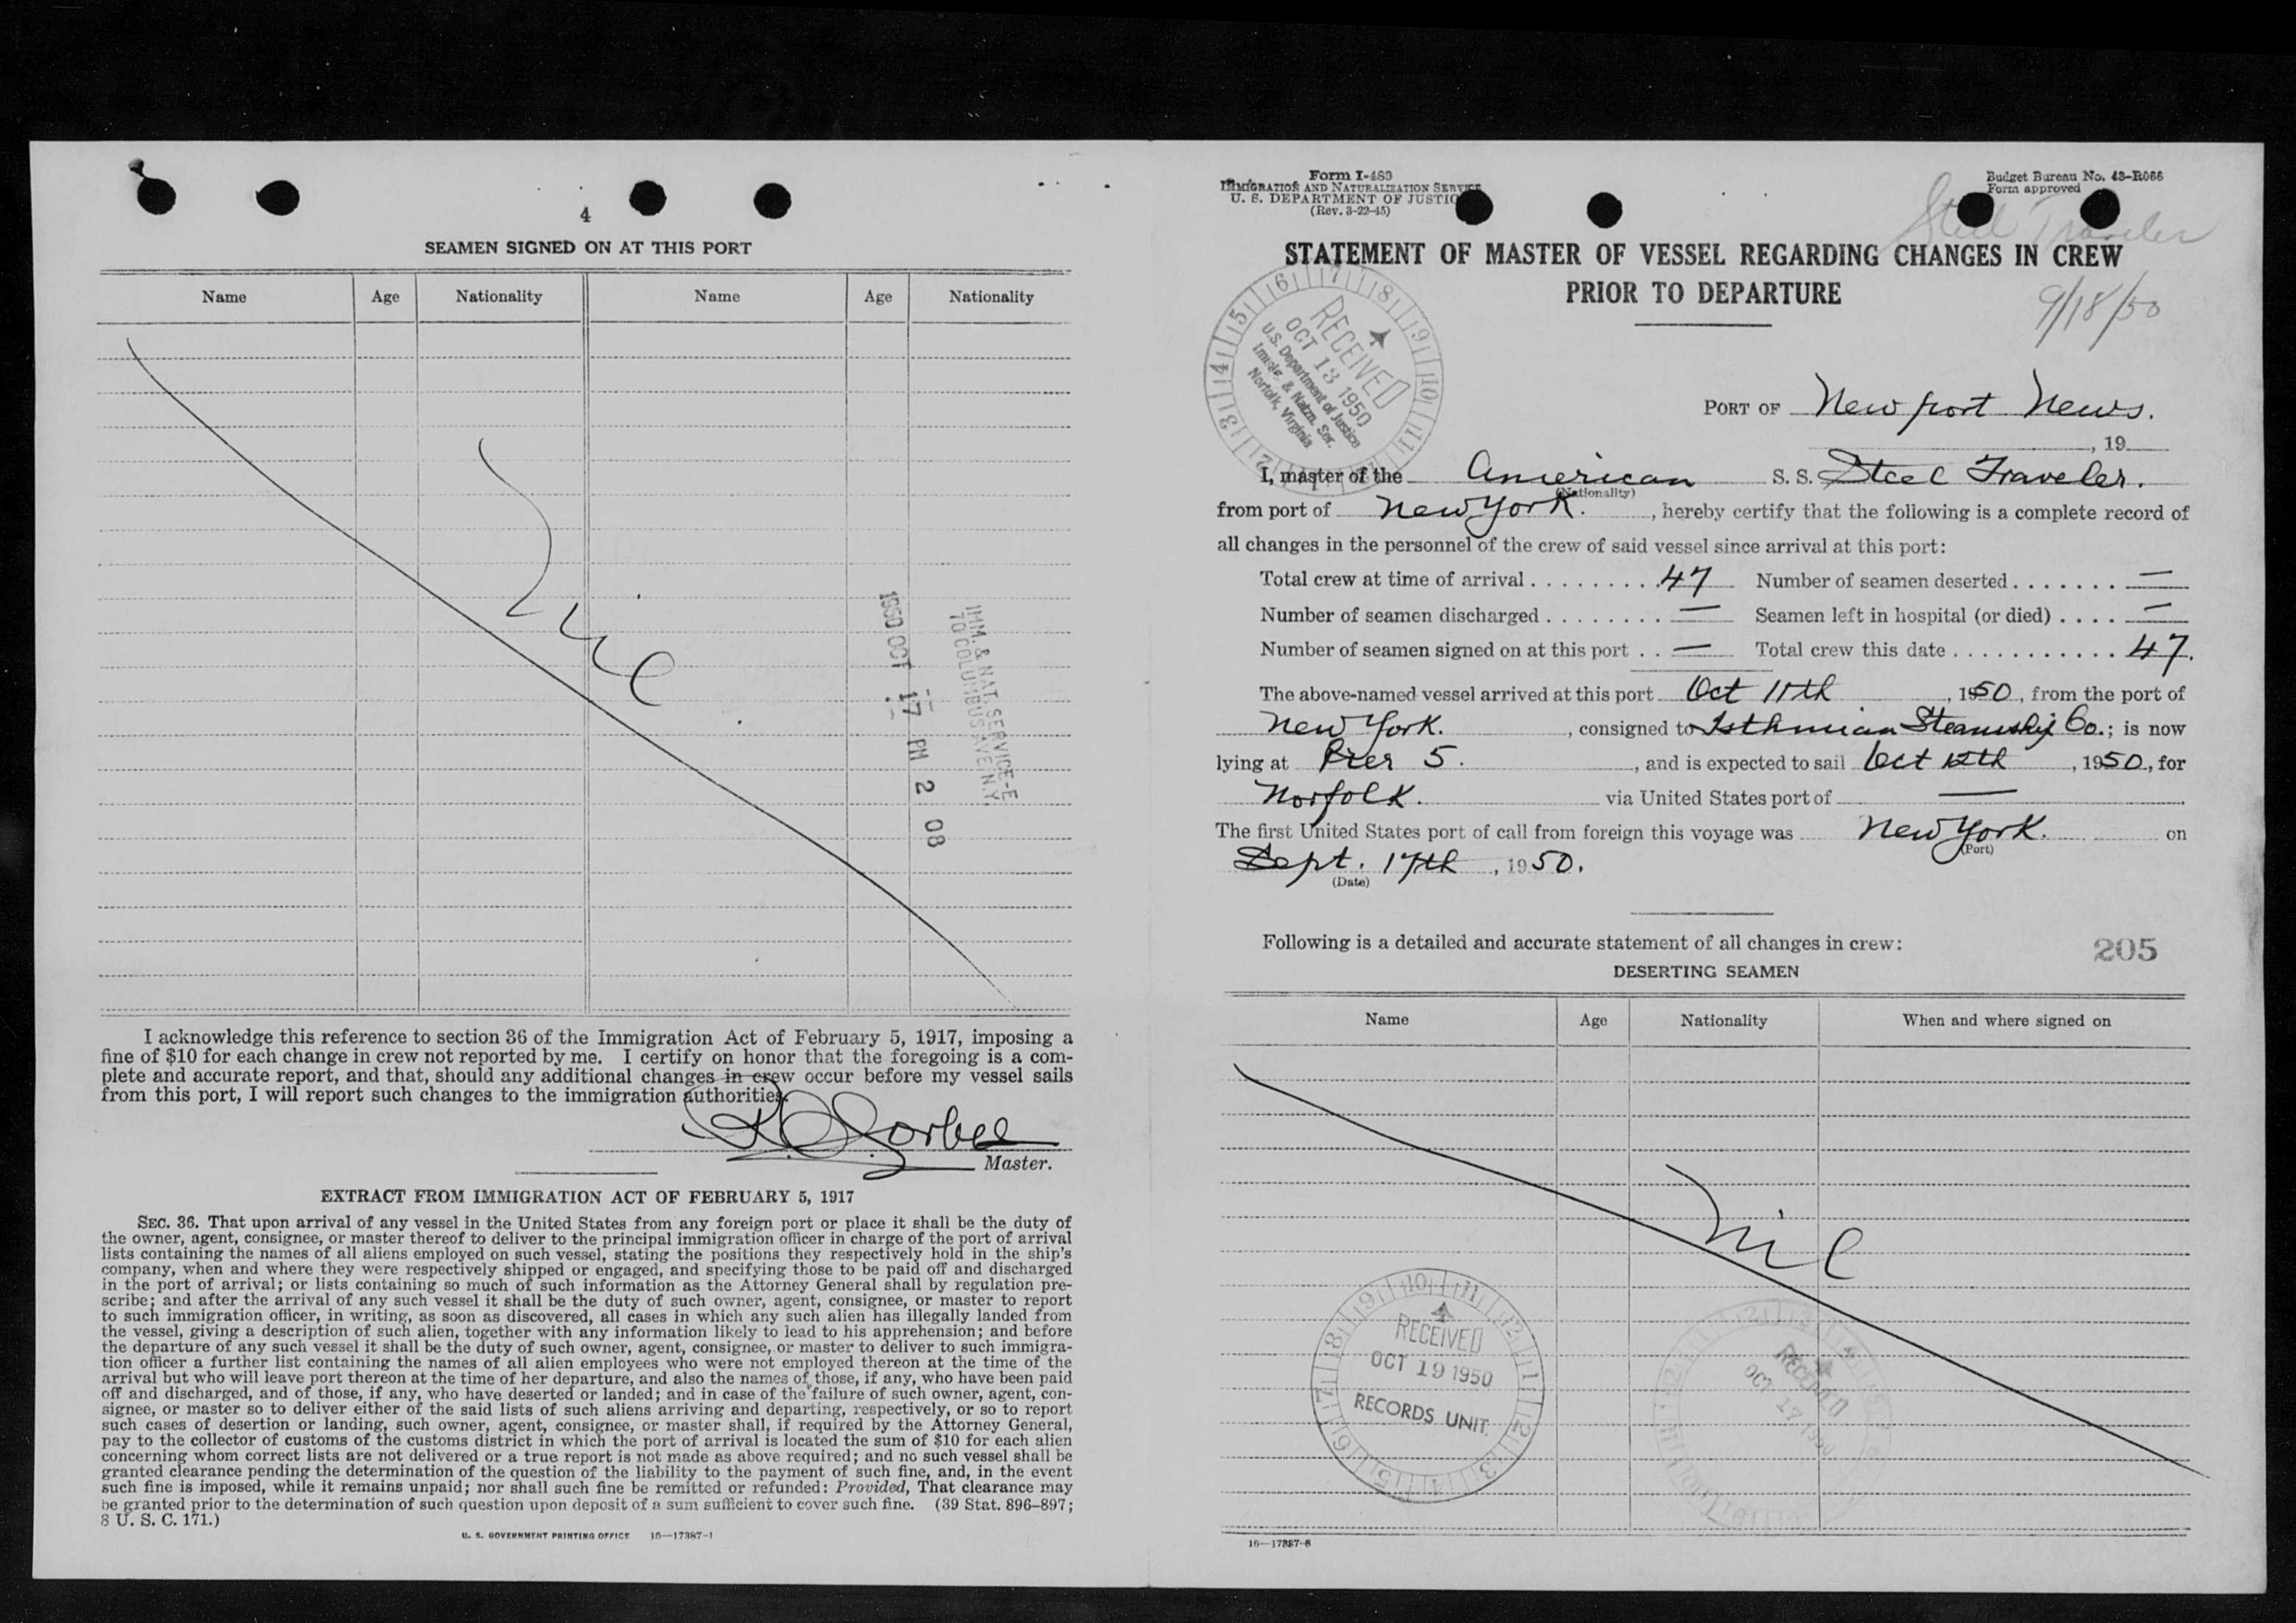 4
SEAMEN SIGNED ON AT THIS PORT
Name Age Nationality Name Age Nationality
Nil
1950 OCT 17 PM 2 08
IMM. & NAT. SERVICE-E
70 COLUMBUS AVE N.Y.
I acknowledge this reference to section 36 of the Immigration Act of February 5, 1917, imposing a
fine of $10 for each change in crew not reported by me. I certify on honor that the foregoing is a com-
plete and accurate report, and that, should any additional changes in crew occur before my vessel sails
from this port, I will report such changes to the immigration authorities.
Master.
EXTRACT FROM IMMIGRATION ACT OF FEBRUARY 5, 1917
SEC. 36. That upon arrival of any vessel in the United States from any foreign port or place it shall be the duty of
the owner, agent, consignee, or master thereof to deliver to the principal immigration officer in charge of the port of arrival
lists containing the names of all aliens employed on such vessel, stating the positions they respectively hold in the ship's
company, when and where they were respectively shipped or engaged, and specifying those to be paid off and discharged
in the port of arrival; or lists containing so much of such information as the Attorney General shall by regulation pre-
scribe; and after the arrival of any such vessel it shall be the duty of such owner, agent, consignee, or master to report
to such immigration officer, in writing, as soon as discovered, all cases in which any such alien has illegally landed from
the vessel, giving a description of such alien, together with any information likely to lead to his apprehension; and before
the departure of any such vessel it shall be the duty of such owner, agent, consignee, or master to deliver to such immigra-
tion officer a further list containing the names of all alien employees who were not employed thereon at the time of the
arrival but who will leave port thereon at the time of her departure, and also the names of those, if any, who have been paid
off and discharged, and of those, if any, who have deserted or landed; and in case of the failure of such owner, agent, con-
signee, or master so to deliver either of the said lists of such aliens arriving and departing, respectively, or so to report
such cases of desertion or landing, such owner, agent, consignee, or master shall, if required by the Attorney General,
pay to the collector of customs of the customs district in which the port of arrival is located the sum of $10 for each alien
concerning whom correct lists are not delivered or a true report is not made as above required; and no such vessel shall be
granted clearance pending the determination of the question of the liability to the payment of such fine, and, in the event
such fine is imposed, while it remains unpaid; nor shall such fine be remitted or refunded: Provided, That clearance may
be granted prior to the determination of such question upon deposit of a sum sufficient to cover such fine. (39 Stat. 896–897;
8 U. S. C. 171.)
U. S. GOVERNMENT PRINTING OFFICE 16—17387-1
Form I-489
IMMIGRATION AND NATURALIZATION SERVICE
U. S. DEPARTMENT OF JUSTICE
(Rev. 3-22-45)
Budget Bureau No. 43-R066
Form approved
Steel Traveler
STATEMENT OF MASTER OF VESSEL REGARDING CHANGES IN CREW
PRIOR TO DEPARTURE
9/18/50
RECEIVED
OCT 13 1950
U.S. Department of Justice
Immig. & Natzn. Ser.
Norfolk, Virginia
PORT OF Newport News.
, 19
I, master of the American S. S. Steel Traveler.
(Nationality)
from port of New York. , hereby certify that the following is a complete record of
all changes in the personnel of the crew of said vessel since arrival at this port:
Total crew at time of arrival . . . . . . . . . 47 Number of seamen deserted . . . . . . . —
Number of seamen discharged . . . . . . . . — Seamen left in hospital (or died) . . . . —
Number of seamen signed on at this port . . — Total crew this date . . . . . . . . . . . 47.
The above-named vessel arrived at this port Oct 11th , 1950, from the port of
New York. , consigned to Isthmian Steamship Co.; is now
lying at Pier 5. , and is expected to sail Oct 12th , 1950, for
Norfolk. via United States port of —
The first United States port of call from foreign this voyage was New York. on
(Port)
Sept. 17th , 1950.
(Date)
Following is a detailed and accurate statement of all changes in crew:
205
DESERTING SEAMEN
Name Age Nationality When and where signed on
Nil
RECEIVED
OCT 19 1950
RECORDS UNIT.
RECEIVED
OCT 17 1950
16—17387-8